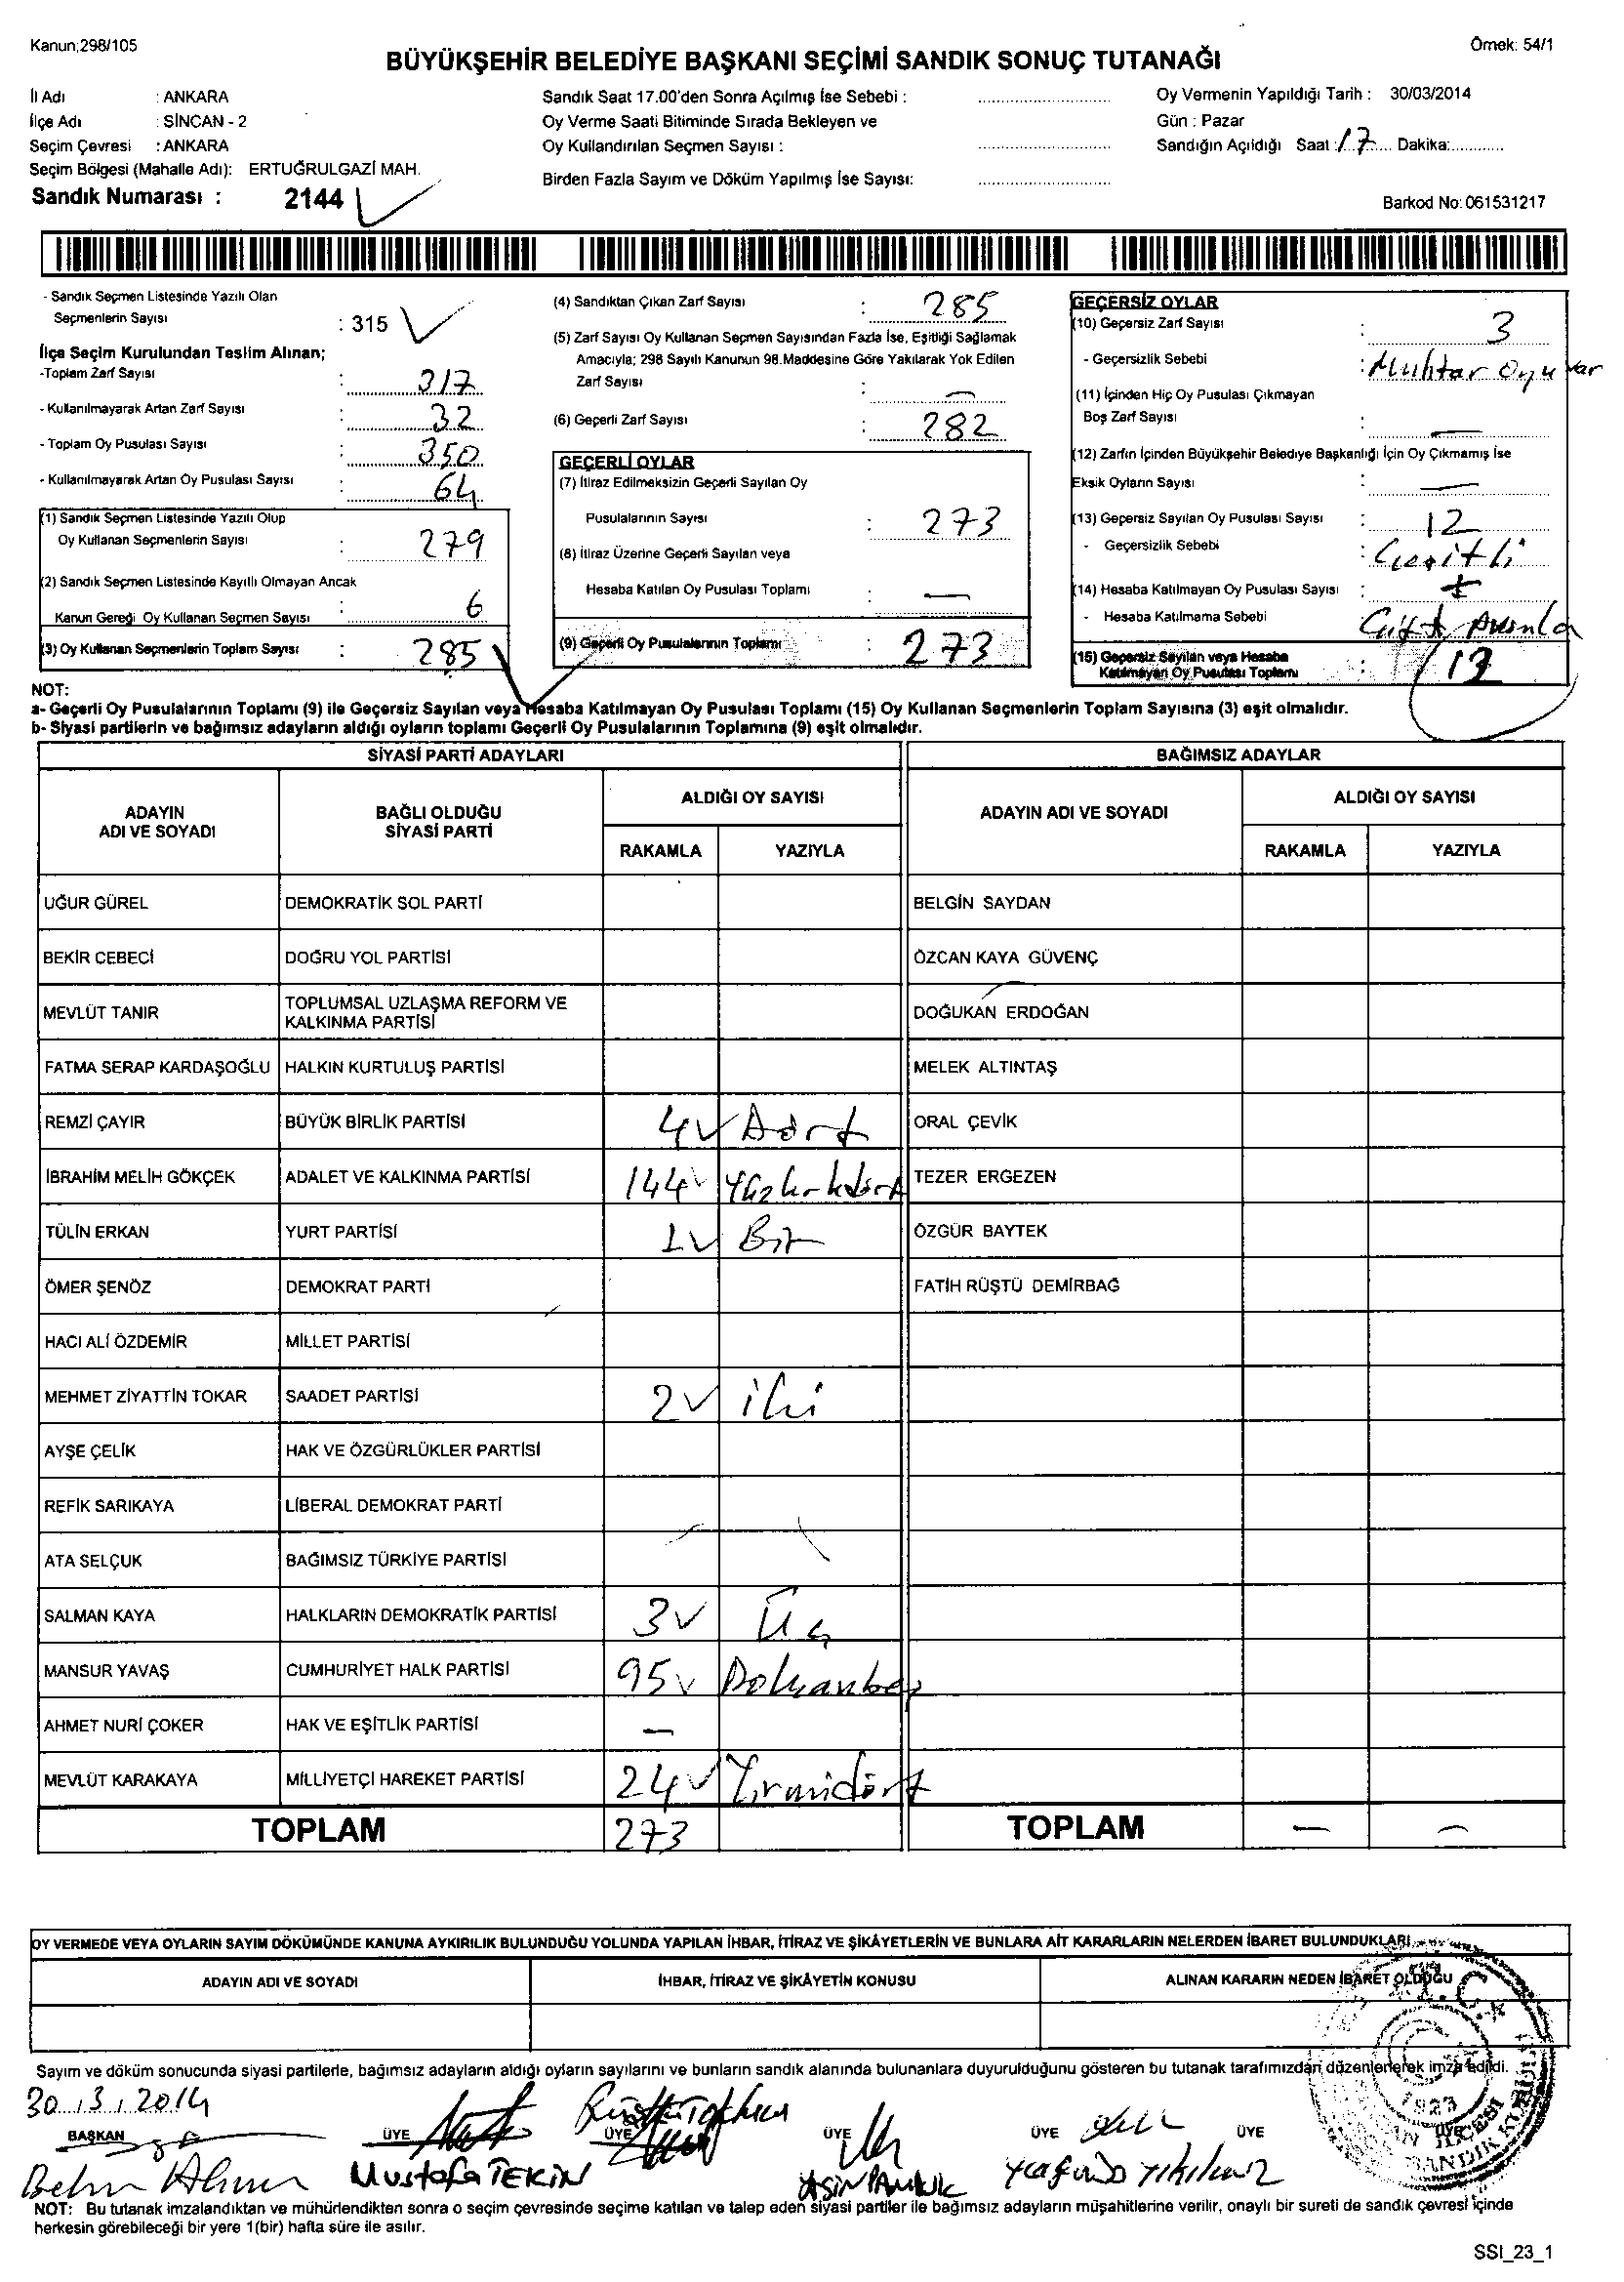 Kanun;298/105
Örnek: 54/1
BÜYÜKŞEHİR BELEDİYE BAŞKANI SEÇİMİ SANDIK SONUÇ TUTANAĞI
İl Adı : ANKARA
İlçe Adı : SİNCAN - 2
Seçim Çevresi : ANKARA
Seçim Bölgesi (Mahalle Adı): ERTUĞRULGAZİ MAH.
Sandık Numarası : 2144
Sandık Saat 17.00'den Sonra Açılmış İse Sebebi :
Oy Verme Saati Bitiminde Sırada Bekleyen ve
Oy Kullandırılan Seçmen Sayısı :
Birden Fazla Sayım ve Döküm Yapılmış İse Sayısı:
Oy Vermenin Yapıldığı Tarih : 30/03/2014
Gün : Pazar
Sandığın Açıldığı Saat : 17 Dakika:
Barkod No: 061531217
- Sandık Seçmen Listesinde Yazılı Olan
Seçmenlerin Sayısı : 315
İlçe Seçim Kurulundan Teslim Alınan;
-Toplam Zarf Sayısı : 317
- Kullanılmayarak Artan Zarf Sayısı : 32
- Toplam Oy Pusulası Sayısı : 350
- Kullanılmayarak Artan Oy Pusulası Sayısı : 64
(1) Sandık Seçmen Listesinde Yazılı Olup
Oy Kullanan Seçmenlerin Sayısı : 279
(2) Sandık Seçmen Listesinde Kayıtlı Olmayan Ancak
Kanun Gereği Oy Kullanan Seçmen Sayısı : 6
(3) Oy Kullanan Seçmenlerin Toplam Sayısı : 285
(4) Sandıktan Çıkan Zarf Sayısı : 285
(5) Zarf Sayısı Oy Kullanan Seçmen Sayısından Fazla İse, Eşitliği Sağlamak
Amacıyla; 298 Sayılı Kanunun 98.Maddesine Göre Yakılarak Yok Edilen
Zarf Sayısı : —
(6) Geçerli Zarf Sayısı : 282
GEÇERLİ OYLAR
(7) İtiraz Edilmeksizin Geçerli Sayılan Oy
Pusulalarının Sayısı : 273
(8) İtiraz Üzerine Geçerli Sayılan veya
Hesaba Katılan Oy Pusulası Toplamı : —
(9) Geçerli Oy Pusulalarının Toplamı : 273
GEÇERSİZ OYLAR
(10) Geçersiz Zarf Sayısı : 3
- Geçersizlik Sebebi : Muhtar Oyu Var
(11) İçinden Hiç Oy Pusulası Çıkmayan
Boş Zarf Sayısı : —
(12) Zarfın İçinden Büyükşehir Belediye Başkanlığı İçin Oy Çıkmamış İse
Eksik Oyların Sayısı : —
(13) Geçersiz Sayılan Oy Pusulası Sayısı : 12
- Geçersizlik Sebebi : Çeşitli
(14) Hesaba Katılmayan Oy Pusulası Sayısı :
- Hesaba Katılmama Sebebi
(15) Geçersiz Sayılan veya Hesaba
Katılmayan Oy Pusulası Toplamı :
NOT:
a- Geçerli Oy Pusulalarının Toplamı (9) ile Geçersiz Sayılan veya Hesaba Katılmayan Oy Pusulası Toplamı (15) Oy Kullanan Seçmenlerin Toplam Sayısına (3) eşit olmalıdır.
b- Siyasi partilerin ve bağımsız adayların aldığı oyların toplamı Geçerli Oy Pusulalarının Toplamına (9) eşit olmalıdır.
SİYASİ PARTİ ADAYLARI BAĞIMSIZ ADAYLAR
ADAYIN ADI VE SOYADI BAĞLI OLDUĞU SİYASİ PARTİ ALDIĞI OY SAYISI ADAYIN ADI VE SOYADI ALDIĞI OY SAYISI
RAKAMLA YAZIYLA RAKAMLA YAZIYLA
UĞUR GÜREL DEMOKRATİK SOL PARTİ BELGİN SAYDAN
BEKİR CEBECİ DOĞRU YOL PARTİSİ ÖZCAN KAYA GÜVENÇ
MEVLÜT TANIR TOPLUMSAL UZLAŞMA REFORM VE KALKINMA PARTİSİ DOĞUKAN ERDOĞAN
FATMA SERAP KARDAŞOĞLU HALKIN KURTULUŞ PARTİSİ MELEK ALTINTAŞ
REMZİ ÇAYIR BÜYÜK BİRLİK PARTİSİ 4 Dört ORAL ÇEVİK
İBRAHİM MELİH GÖKÇEK ADALET VE KALKINMA PARTİSİ 144 Yüzkırkdört TEZER ERGEZEN
TÜLİN ERKAN YURT PARTİSİ 1 Bir ÖZGÜR BAYTEK
ÖMER ŞENÖZ DEMOKRAT PARTİ FATİH RÜŞTÜ DEMİRBAĞ
HACI ALİ ÖZDEMİR MİLLET PARTİSİ
MEHMET ZİYATTİN TOKAR SAADET PARTİSİ 2 iki
AYŞE ÇELİK HAK VE ÖZGÜRLÜKLER PARTİSİ
REFİK SARIKAYA LİBERAL DEMOKRAT PARTİ
ATA SELÇUK BAĞIMSIZ TÜRKİYE PARTİSİ
SALMAN KAYA HALKLARIN DEMOKRATİK PARTİSİ 3 Üç
MANSUR YAVAŞ CUMHURİYET HALK PARTİSİ 95 Doksanbeş
AHMET NURİ ÇOKER HAK VE EŞİTLİK PARTİSİ —
MEVLÜT KARAKAYA MİLLİYETÇİ HAREKET PARTİSİ 24 Yirmidört
TOPLAM 273 TOPLAM — —
OY VERMEDE VEYA OYLARIN SAYIM DÖKÜMÜNDE KANUNA AYKIRILIK BULUNDUĞU YOLUNDA YAPILAN İHBAR, İTİRAZ VE ŞİKÂYETLERİN VE BUNLARA AİT KARARLARIN NELERDEN İBARET BULUNDUKLARI
ADAYIN ADI VE SOYADI İHBAR, İTİRAZ VE ŞİKÂYETİN KONUSU ALINAN KARARIN NEDEN İBARET OLDUĞU
Sayım ve döküm sonucunda siyasi partilerle, bağımsız adayların aldığı oyların sayılarını ve bunların sandık alanında bulunanlara duyurulduğunu gösteren bu tutanak tarafımızdan düzenlenerek imza edildi.
30.3.2014
BAŞKAN ÜYE ÜYE ÜYE ÜYE ÜYE
Mustafa TEKİN
T.C.
1923
NOT: Bu tutanak imzalandıktan ve mühürlendikten sonra o seçim çevresinde seçime katılan ve talep eden siyasi partiler ile bağımsız adayların müşahitlerine verilir, onaylı bir sureti de sandık çevresi içinde
herkesin görebileceği bir yere 1(bir) hafta süre ile asılır.
SSI_23_1